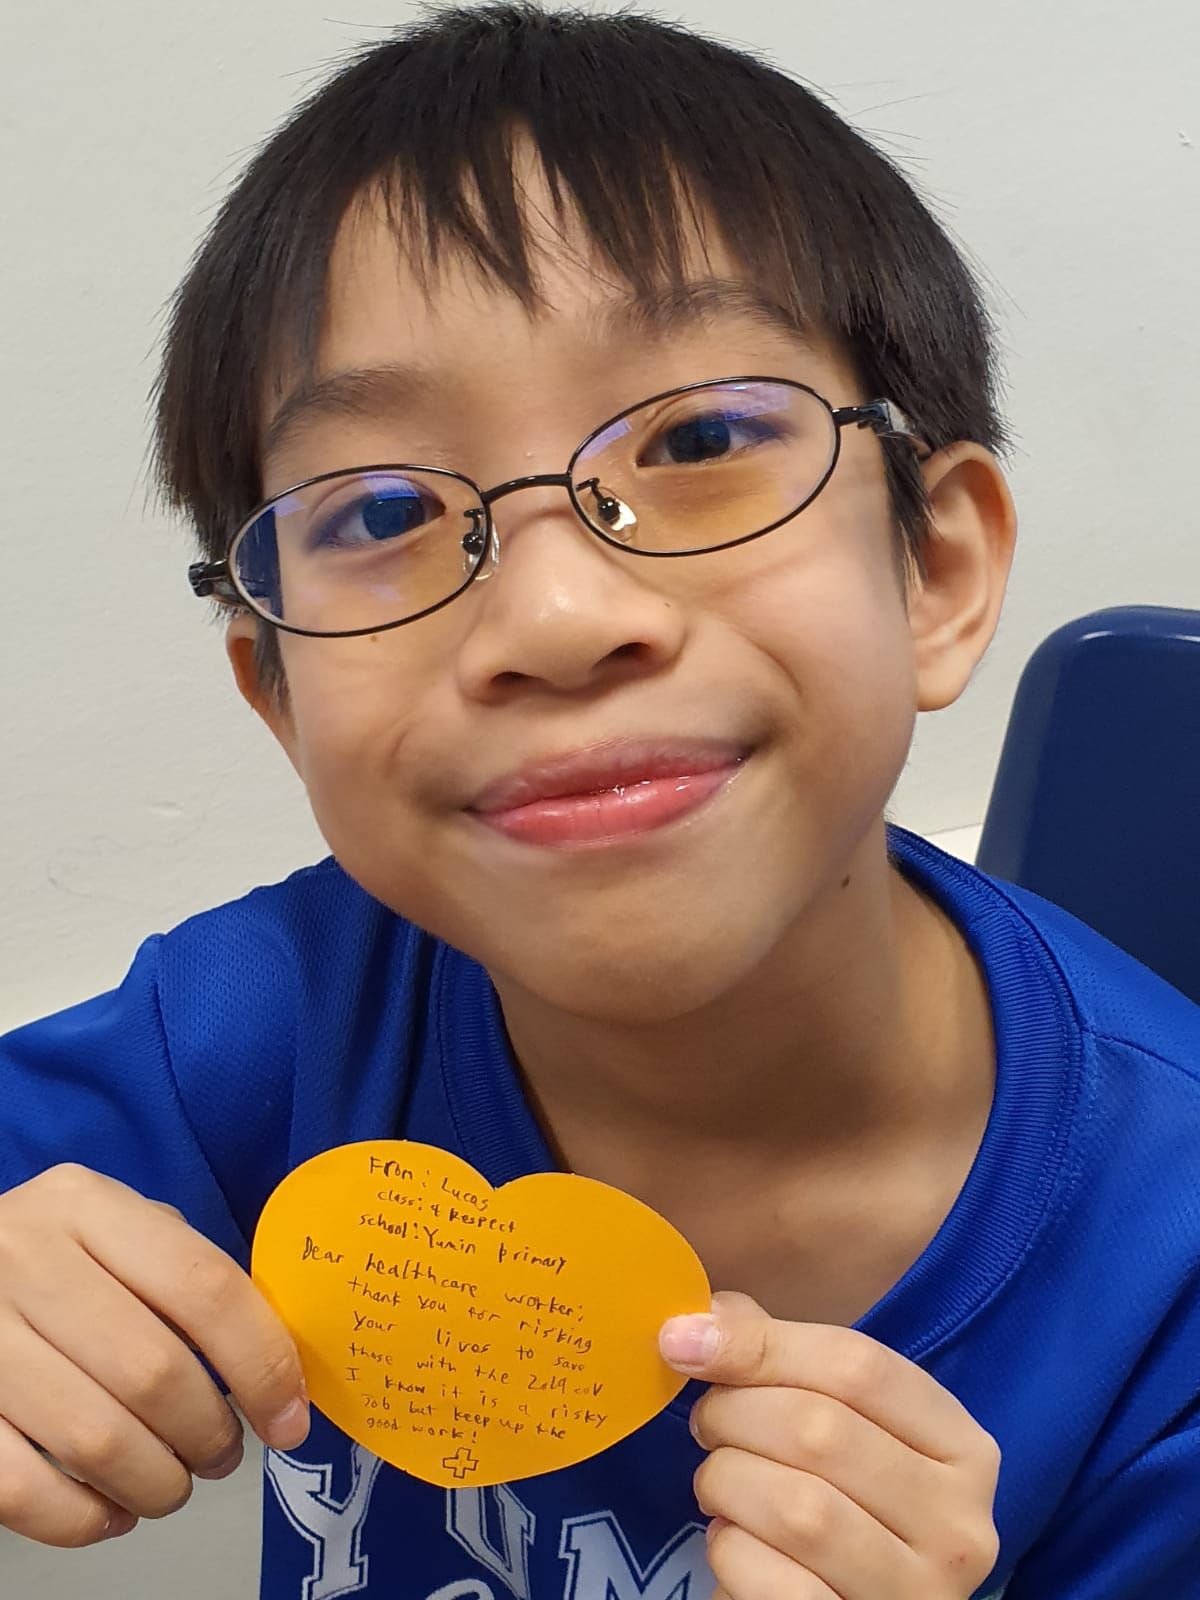 From: Lucas
class: 4 Respect
school: Yumin primary
Dear healthcare worker;
thank you for risking
your lives to save
those with the 2019 coV
I know it is a risky
Job but keep up the
good work!
YUM